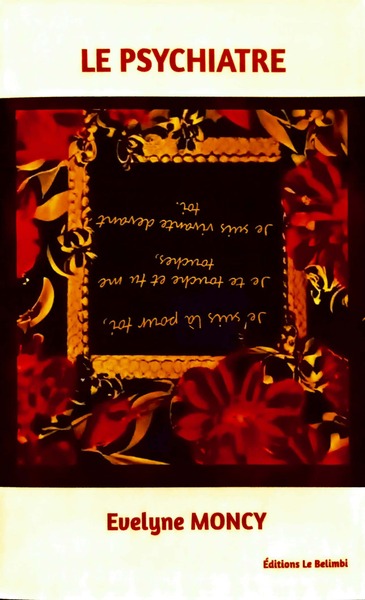 LE PSYCHIATRE
je suis là pour toi,
je te touche et tu me
touches,
je suis vivante devant
toi.
Evelyne MONCY
Éditions Le Belimbi